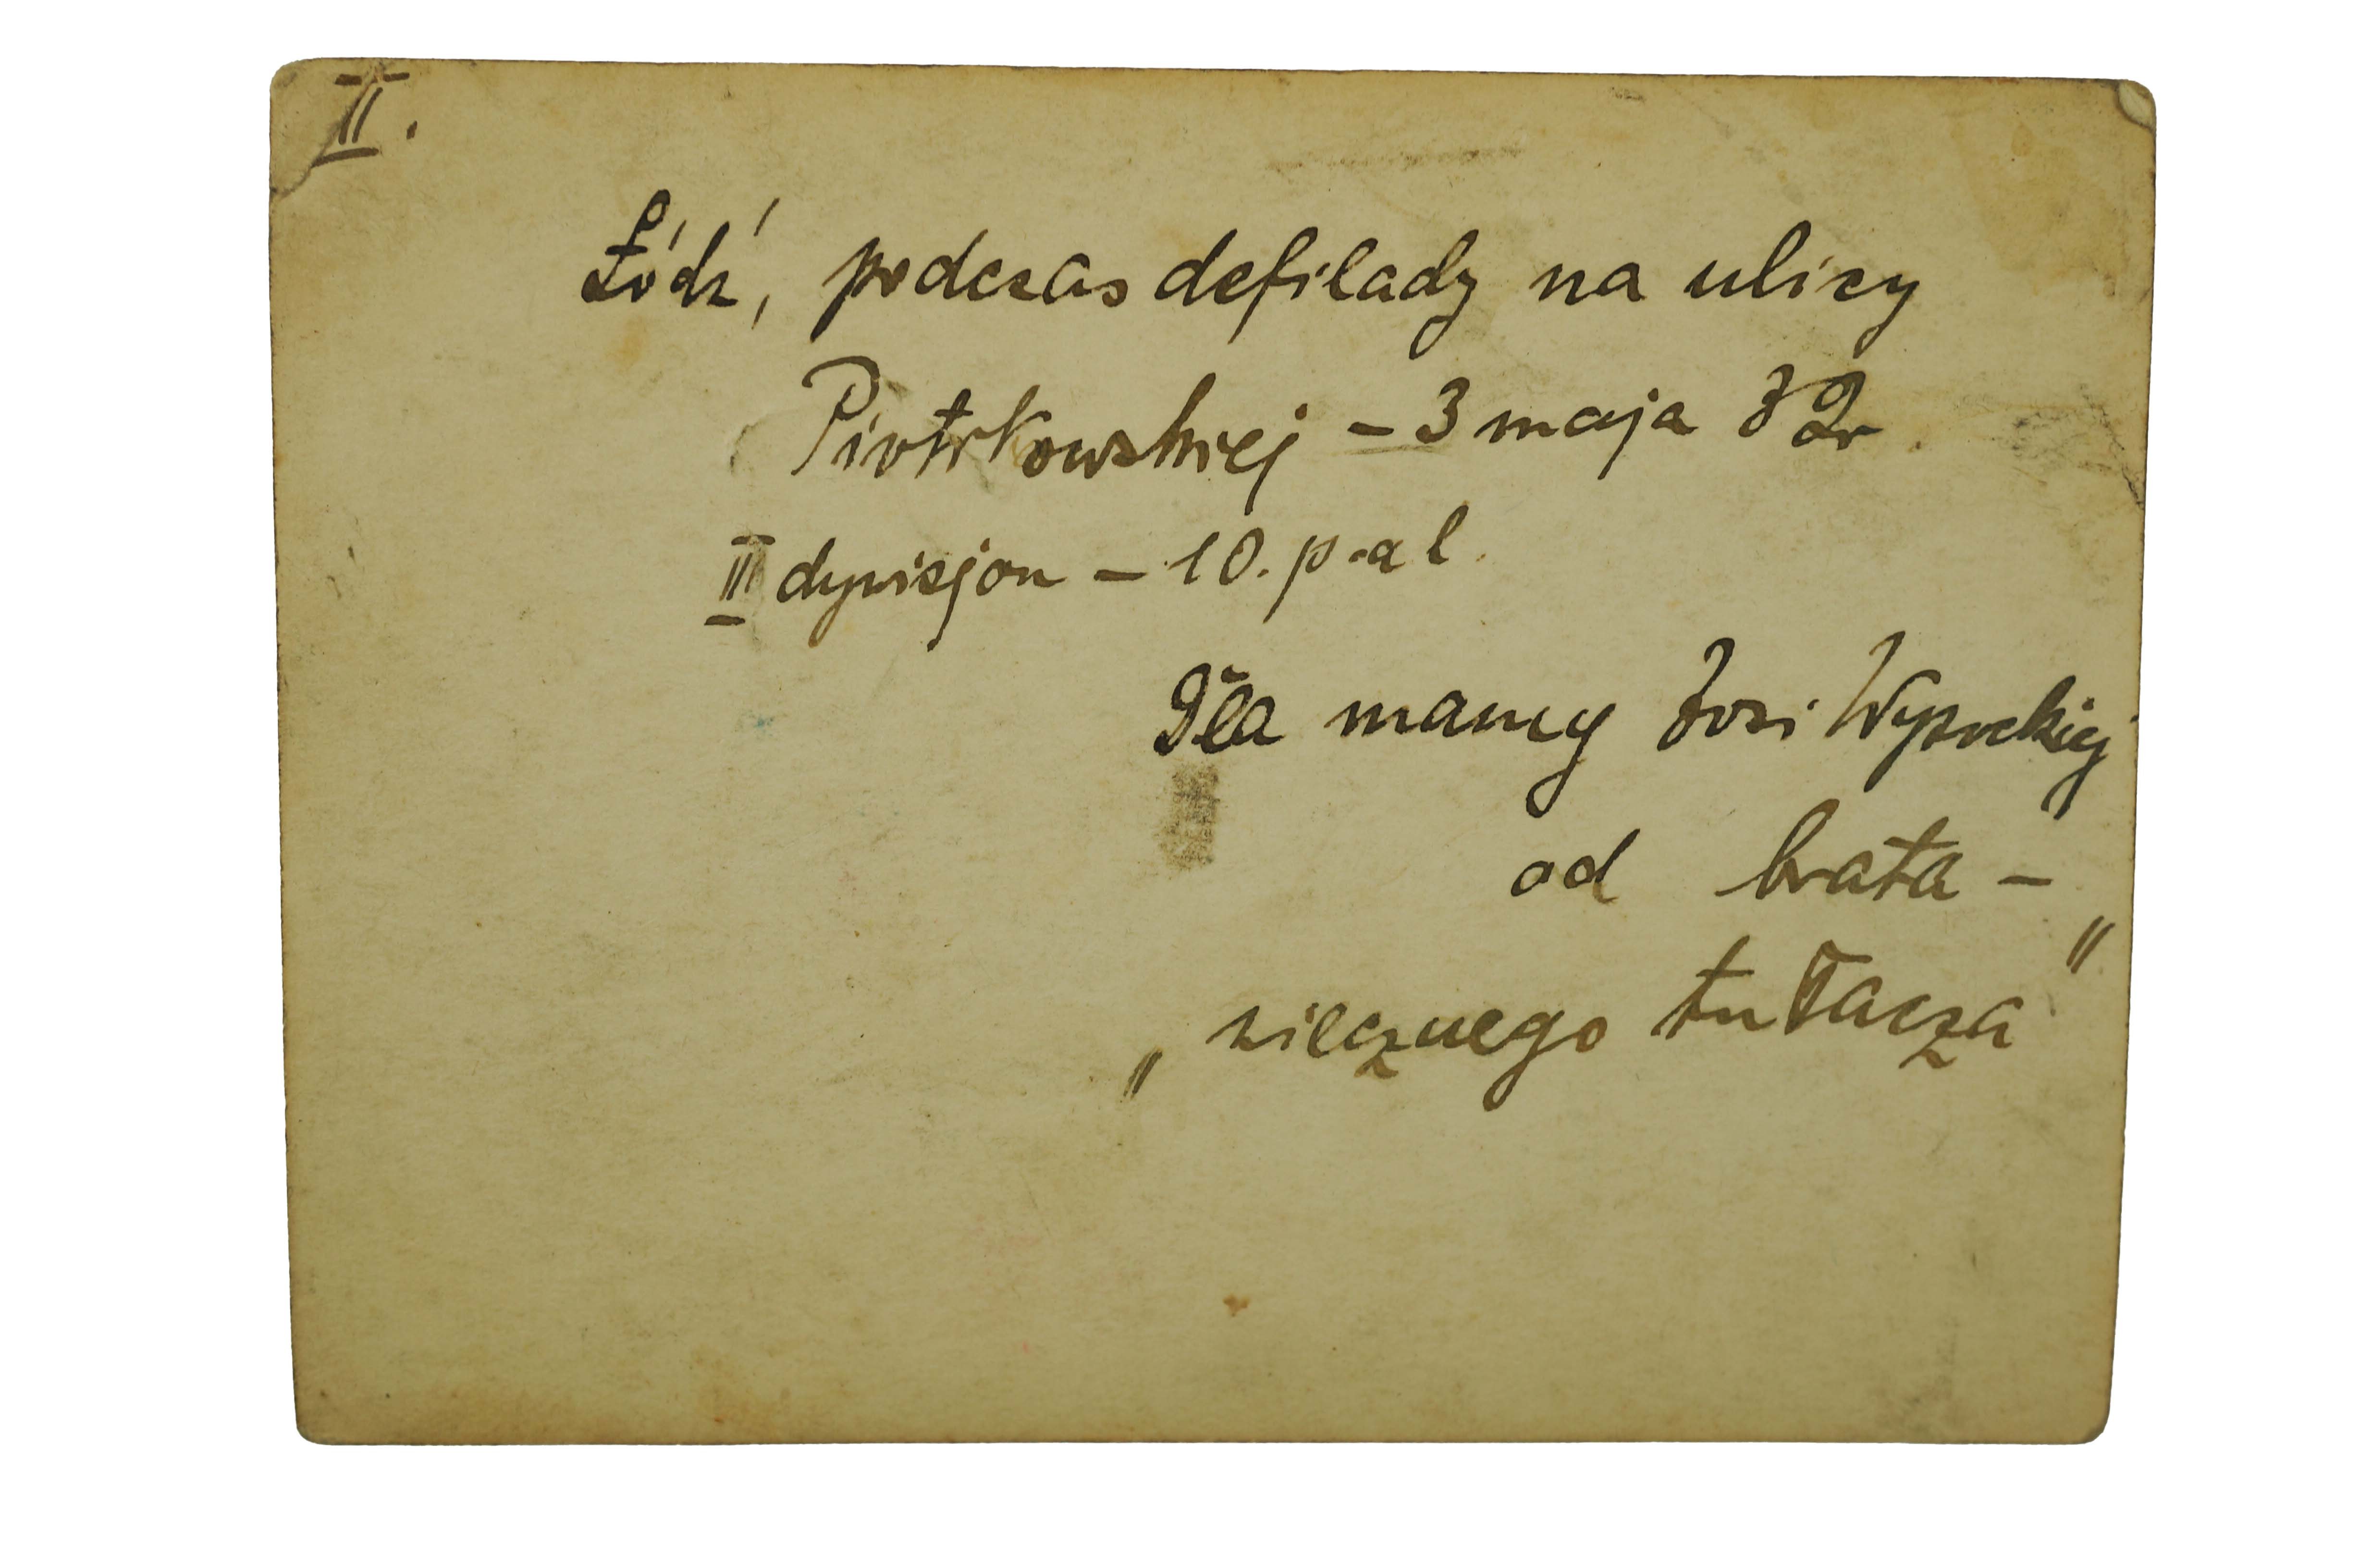 II.
Łódź, podczas defilady na ulicy
Piotrkowskiej – 3 maja 32r
II dywizjon – 10. p.al.
Dla mamy Zosi Wysockiej
od brata –
„wiecznego tułacza"